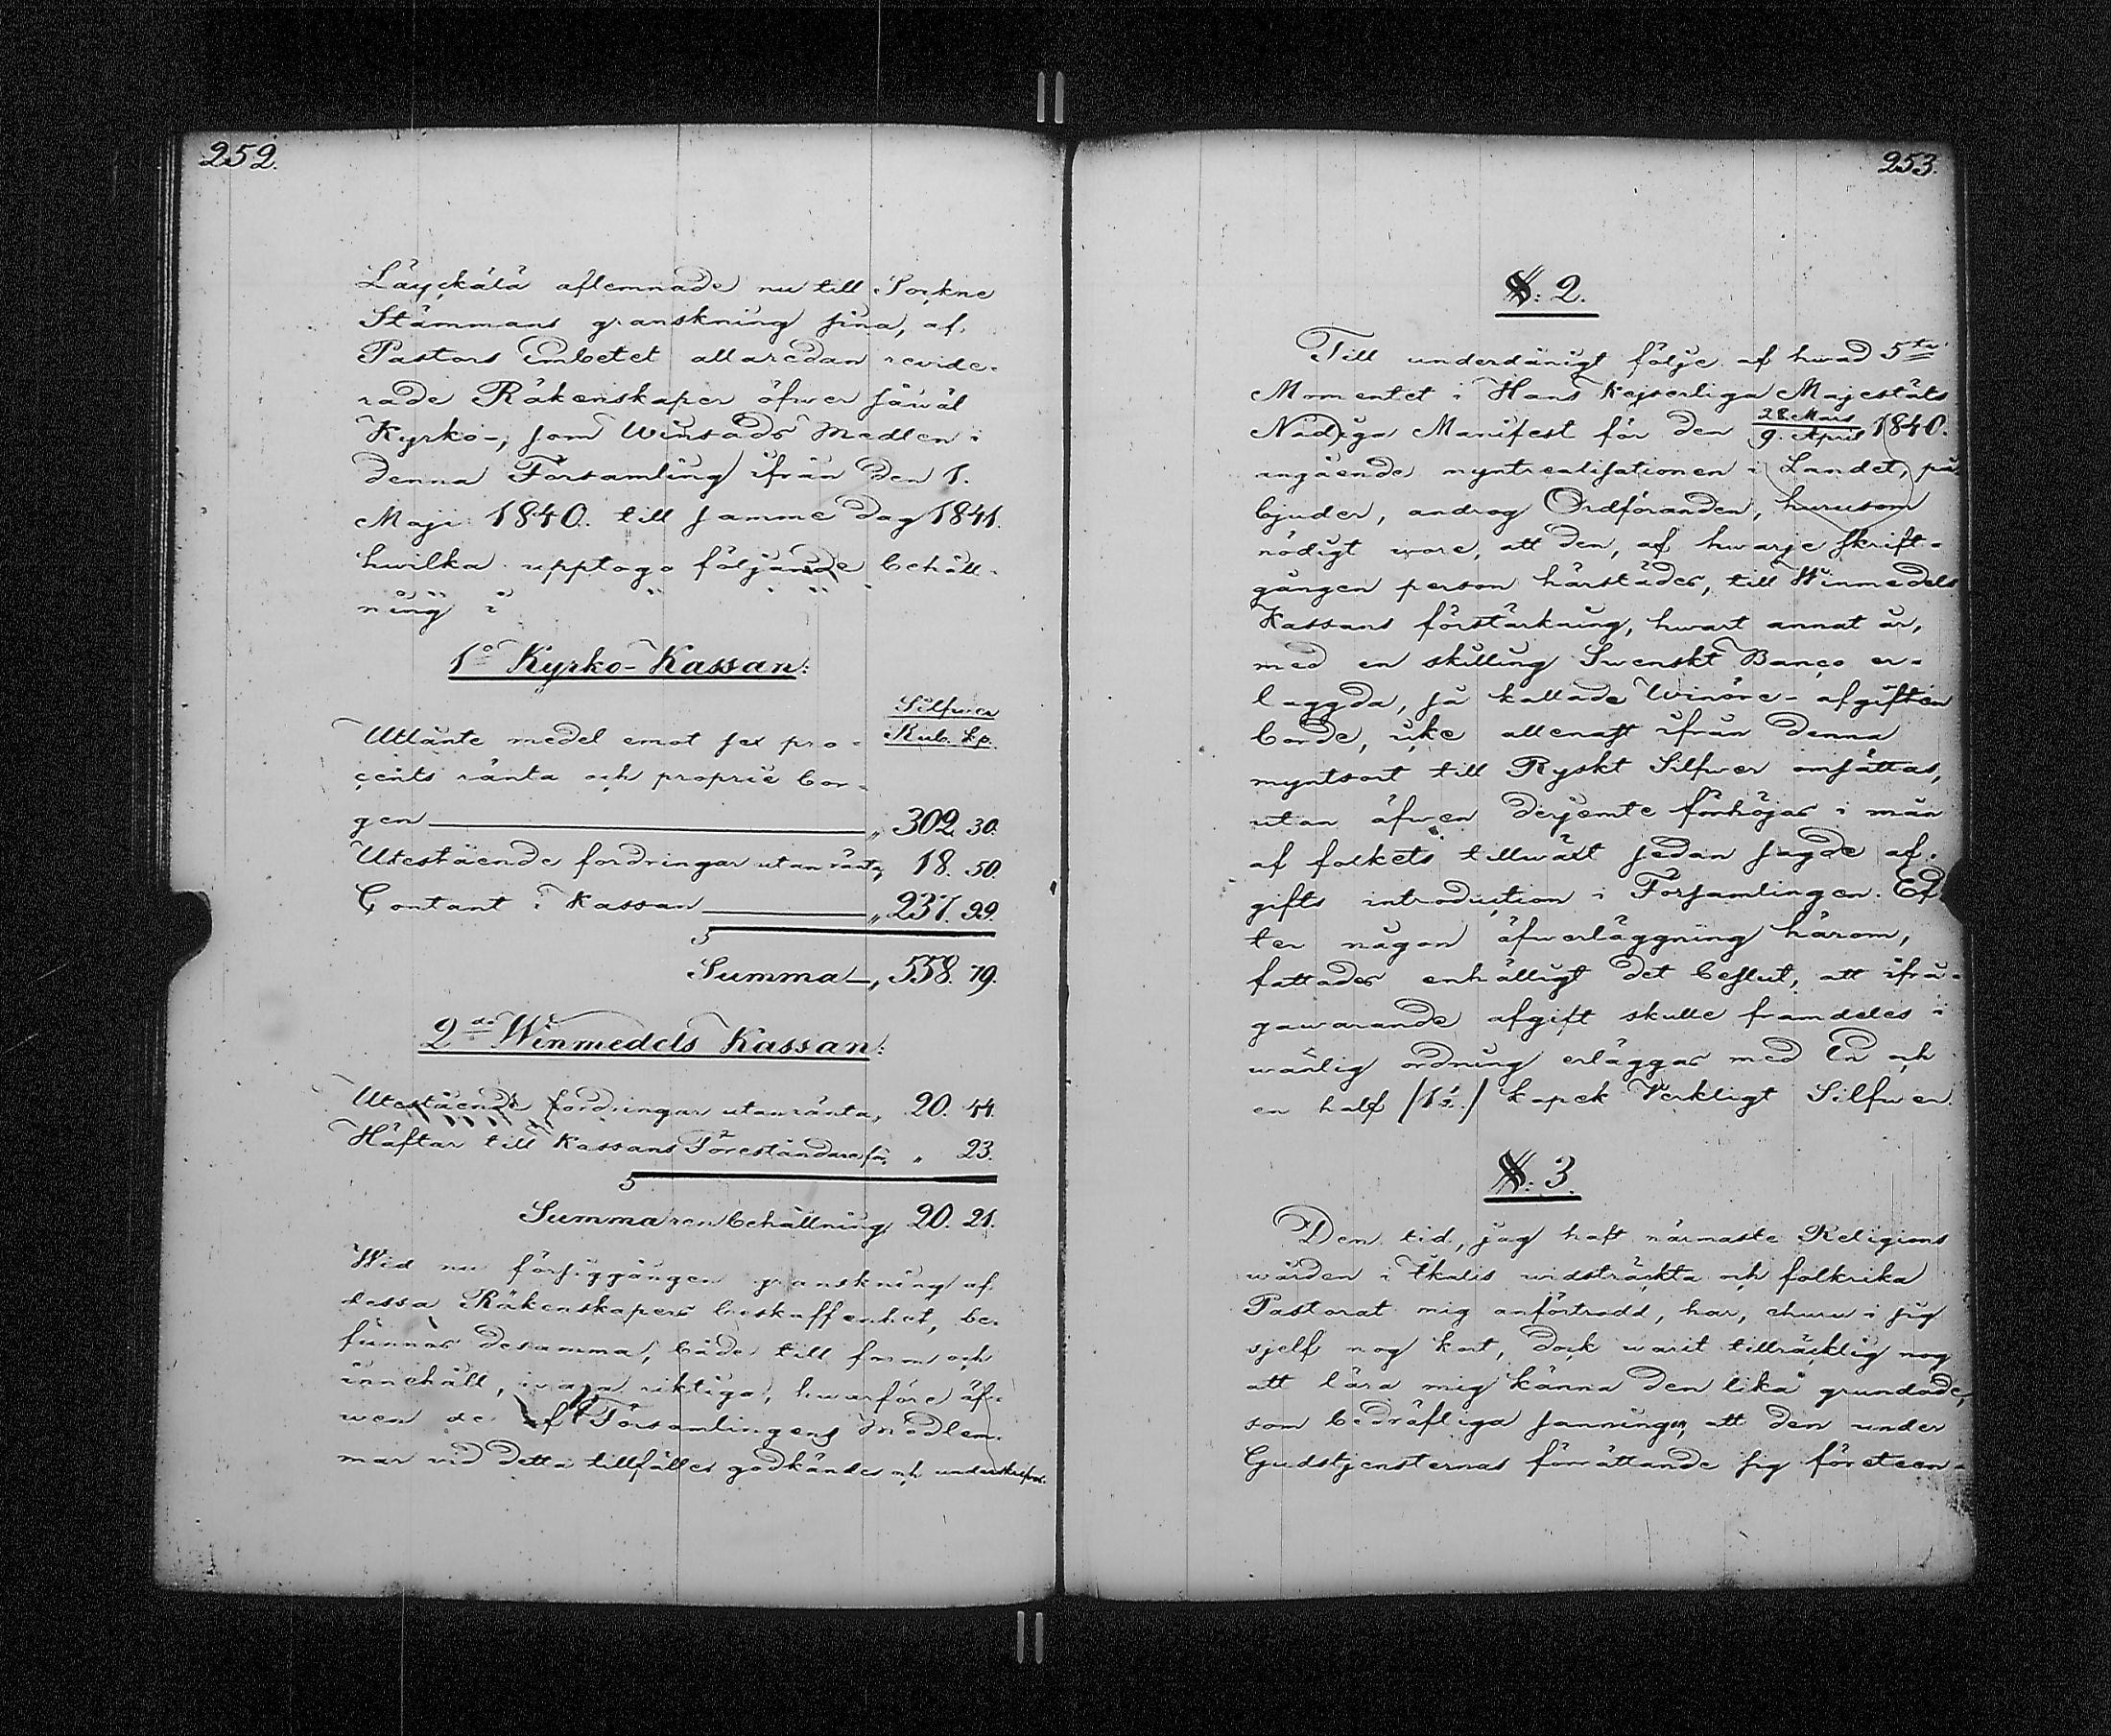 252.
Läyckälä aflemnade nu till Sockne
Stämmans granskning sina, af
Pastors Embetet allaredan revide-
rade Räkenskaper öfwer såwäl
Kyrko-, som Winsåds Medlen i
denna Församling ifrån den 1.
Maji 1840. till samme dag 1841.
hwilka upptogo följande behåll-
ning i
1o Kyrko-Kassan:
Silfwer
Rub. kp.
Utlånte medel emot sex pro-
cents ränta och proprie bor-
gen „ 302. 30.
Utestående fordringar utan ränta, 18. 50.
Contant i Kassan „ 237. 99.
Summa —, 558. 79.
2do Winmedels Kassan:
Utestående fordringar utan ränta, 20. 44.
Häftar till Kassans Föreståndare „ 23.
Summa ren behållning 20. 21.
Wid nu försiggången granskning af
dessa Räkenskapers beskaffenhet, be-
funnos desamma, både till form och
innehåll, wara riktiga, hwarföre äf-
wen de af Församlingens Medlem-
mar vid detta tillfälle godkändes och underskrefvos.
253.
§: 2.
Till underdånigt följe af hwad 5te
Momentet i Hans Kejserliga Majestäts
Nådiga Manifest för den 28 Mars / 9. April 1840.
angående myntrealisationen i Landet, på-
bjuder, androg Ordföranden, hurusom
nödigt wore, att den, af hwarje skrift-
gången person härstädes, till Winmedels
Kassans förstärkning, hwart annat år,
med en skilling Swenskt Banco er-
laggda, så kallade Winöre-afgiften
borde, icke allenast ifrån denna
myntsort till Ryskt Silfwer omsättas,
utan äfwen derjemte förhöjas i mån
af folkets tillwäxt sedan sagde af-
gifts introduction i Församlingen. Ef-
ter någon öfwerläggning härom,
fattades enhälligt det beslut, att ifrå-
gawarande afgift skulle framdeles i
wanlig ordning erläggas med En och
en half /1½./ kopek Verkligt Silfwer.
§: 3.
Den tid, jag haft närmaste Religions
wården i Ikalis widsträckta och folkrika
Pastorat mig anförtrodd, har, ehuru i sig
sjelf nog kort, dock warit tillräcklig nog
att lära mig känna den lika grundade,
som bedröfliga sanningen, att den under
Gudstjensternas förrättande sig företeen-